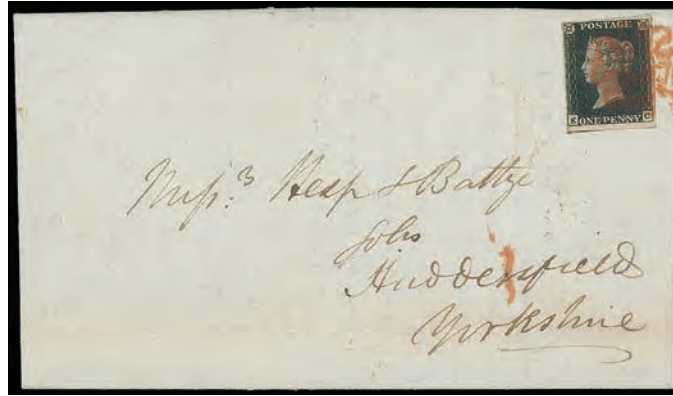 POSTAGE
K ONE PENNY C
Messrs Hesp & Battye
Solrs
Huddersfield
Yorkshire